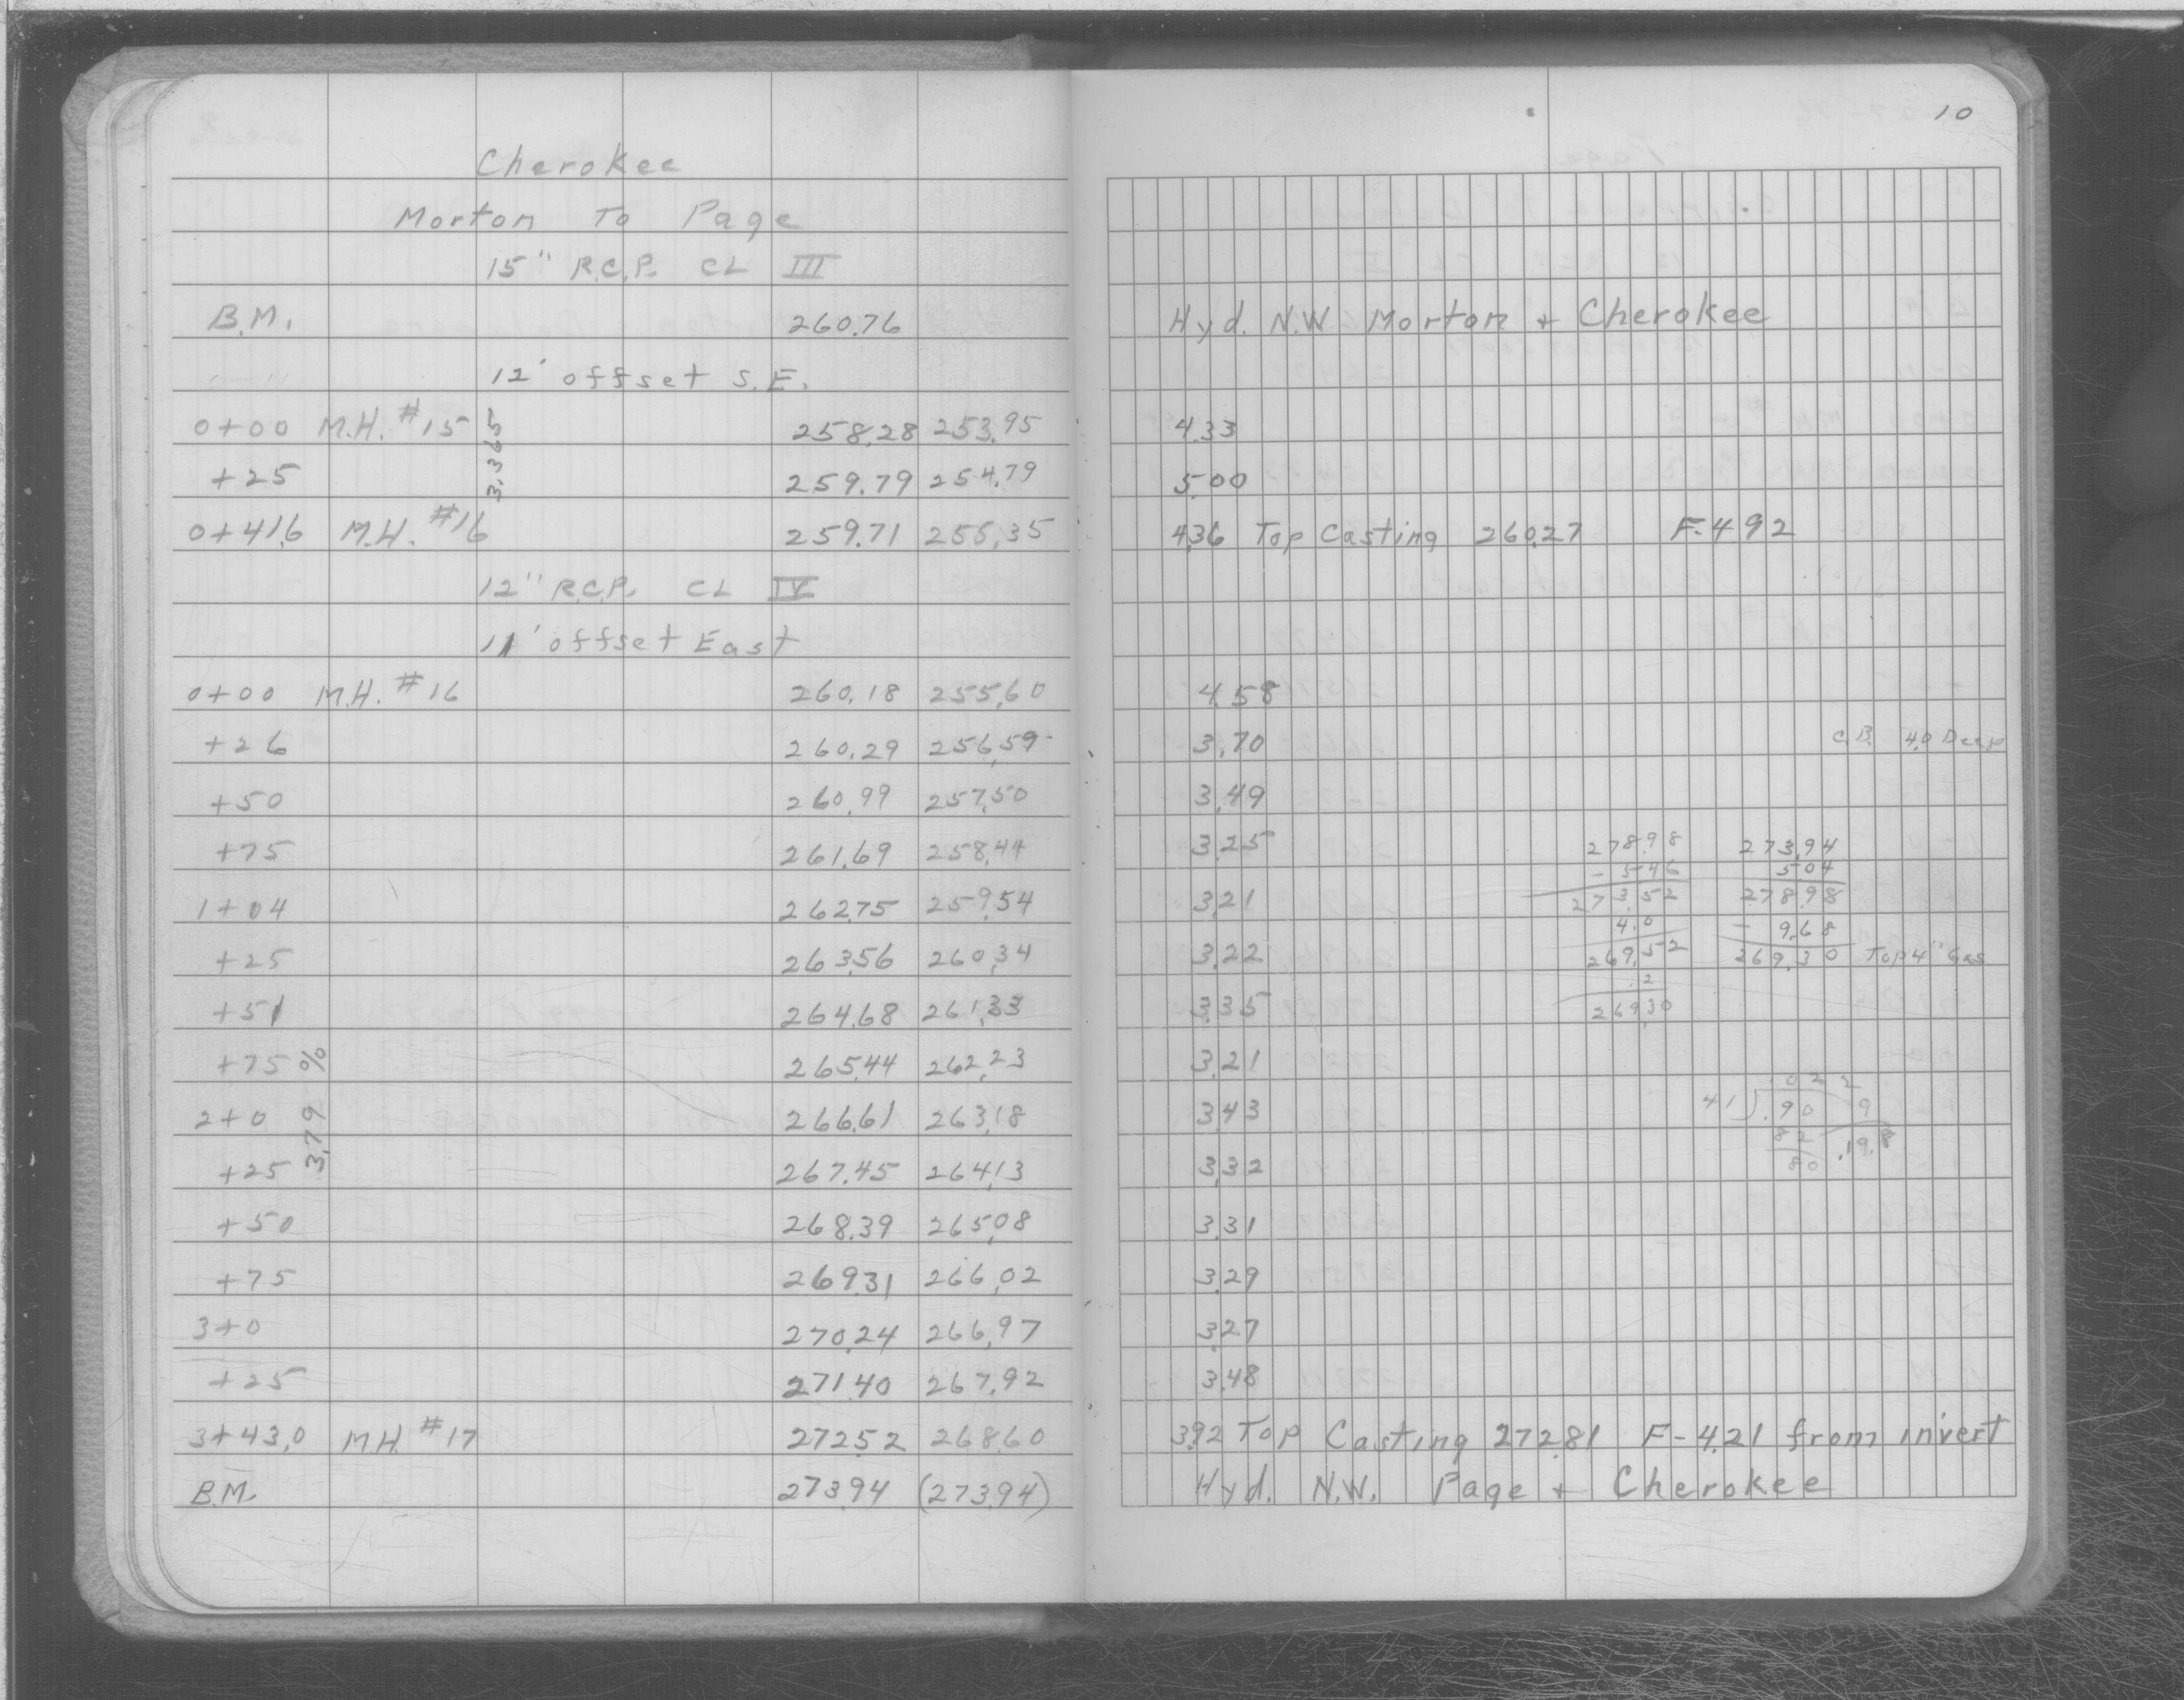 10
Cherokee
Morton To Page
15" R.C.P. CL III
B.M. 260.76 Hyd. N.W. Morton + Cherokee
12' offset S.E.
0+00 M.H. #15 258.28 253.95 4.33
3.365
+25 259.79 254.79 5.00
0+41.6 M.H. #16 259.71 255.35 4.36 Top Casting 260.27 F-4.92
12" R.C.P. CL IV
11' offset East
0+00 M.H. #16 260.18 255.60 4.58
+26 260.29 256.59 3.70 C.B. 4.0 Deep
+50 260.99 257.50 3.49
+75 261.69 258.44 3.25
1+04 262.75 259.54 3.21
+25 263.56 260.34 3.22
+51 264.68 261.33 3.35
+75 265.44 262.23 3.21
3.79 %
2+0 266.61 263.18 3.43
+25 267.45 264.13 3.32
+50 268.39 265.08 3.31
+75 269.31 266.02 3.29
3+0 270.24 266.97 3.27
+25 271.40 267.92 3.48
3+43.0 M.H. #17 272.52 268.60 3.92 Top Casting 272.81 F-4.21 from invert
B.M. 273.94 (273.94) Hyd. N.W. Page + Cherokee
278.98
- 5.46
273.52
4.0
269.52
.2
269.30
273.94
5.04
278.98
- 9.68
269.30 Top 4" Gas
.022
41).90
82
80
9
.198